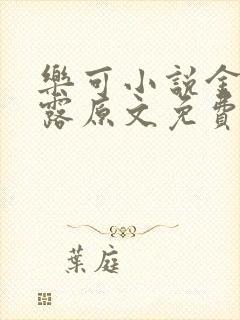 樂可小說金
露原文免費
葉庭